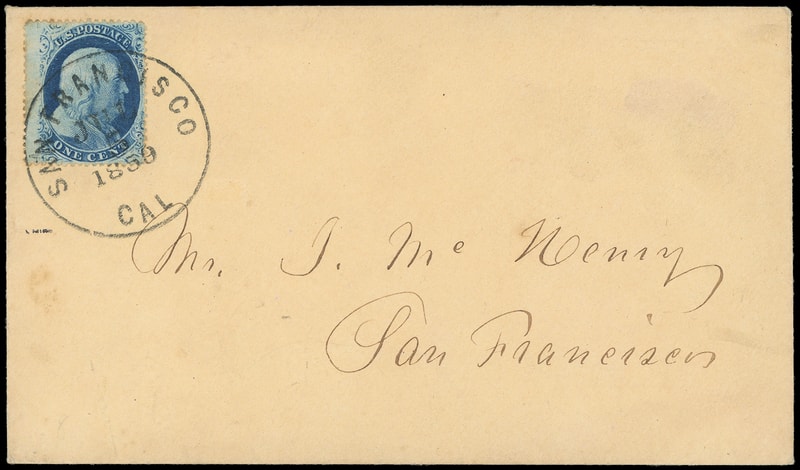 U.S. POSTAGE
ONE CENT
SAN FRANCISCO
1859
CAL
Mr. J. Mc Henry
San Francisco